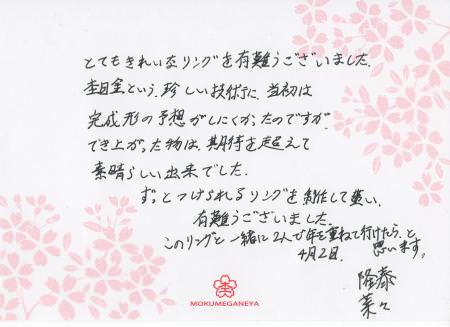 とてもきれいなリングを有難うございました。
杢目金という、珍しい技術に、当初は
完成形の予想がしにくかったのですが、
でき上がった物は、期待を超えて
素晴らしい出来でした。
ずっとつけられるリングを制作して貰い、
有難うございました。
このリングと一緒に2人で年を重ねて行けたら、と
思います。
4月2日.
隆泰
菜々
MOKUMEGANEYA